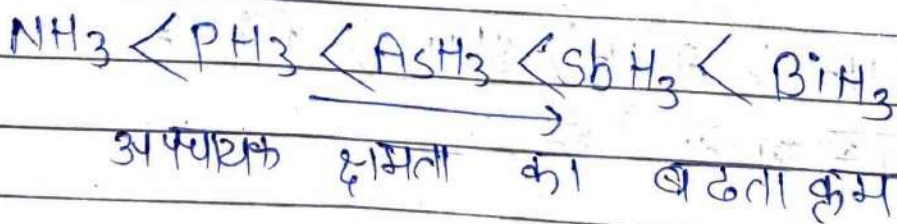 NH₃ < PH₃ < AsH₃ < SbH₃ < BiH₃
अपचायक क्षमता का बढता क्रम